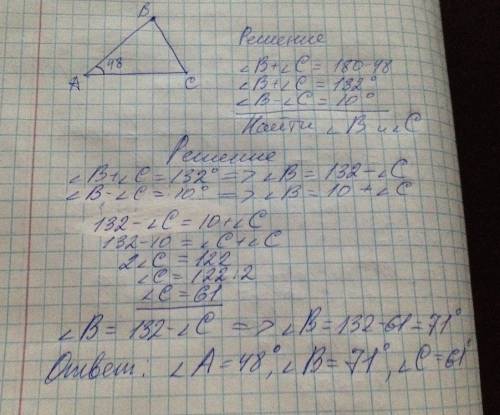 B
48
A
C
Решение
∠B+∠C = 180-48
∠B+∠C = 132°
∠B-∠C = 10°
Найти ∠B и ∠C
Решение
∠B+∠C = 132° => ∠B = 132-∠C
∠B-∠C = 10° => ∠B = 10+∠C
132-∠C = 10+∠C
132-10 = ∠C+∠C
2∠C = 122
∠C = 122:2
∠C = 61
∠B = 132-∠C => ∠B = 132-61 = 71°
Ответ: ∠A = 48°, ∠B = 71°, ∠C = 61°